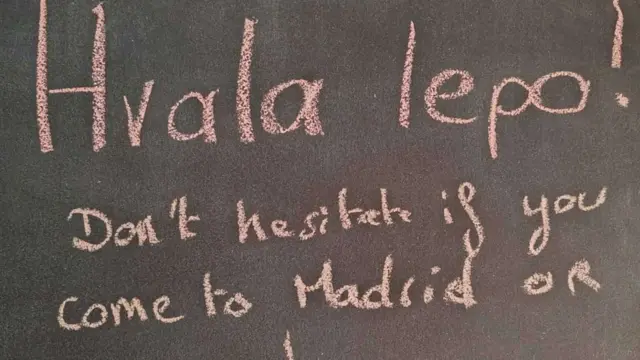 Hvala lepo!
Don't hesitate if you
come to Madrid OR